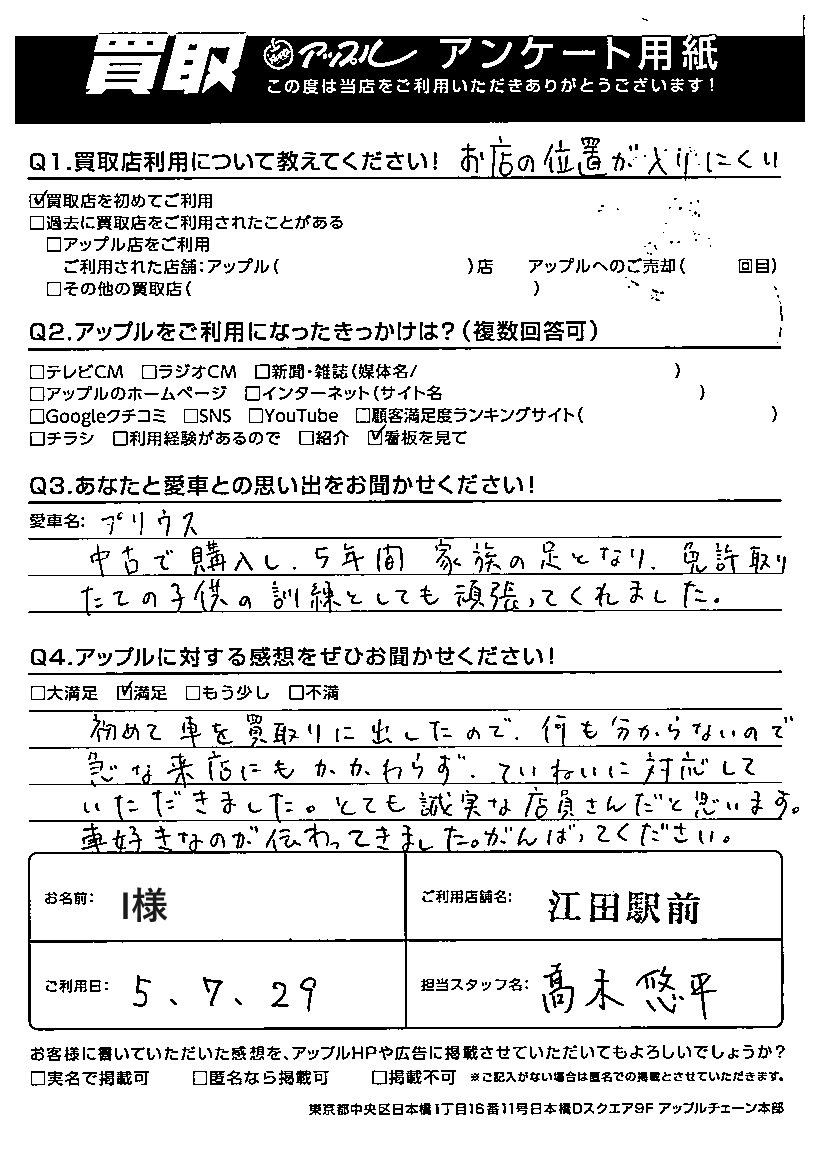 買取 アップル アンケート用紙
この度は当店をご利用いただきありがとうございます！
Q1.買取店利用について教えてください！ お店の位置が入りにくい
☑買取店を初めてご利用
□過去に買取店をご利用されたことがある
□アップル店をご利用
ご利用された店舗：アップル（ ）店 アップルへのご売却（ 回目）
□その他の買取店（ ）
Q2.アップルをご利用になったきっかけは？（複数回答可）
□テレビCM □ラジオCM □新聞・雑誌（媒体名/ ）
□アップルのホームページ □インターネット（サイト名 ）
□Googleクチコミ □SNS □YouTube □顧客満足度ランキングサイト（ ）
□チラシ □利用経験があるので □紹介 ☑看板を見て
Q3.あなたと愛車との思い出をお聞かせください！
愛車名： プリウス
中古で購入し、5年間 家族の足となり、免許取り
たての子供の訓練としても頑張ってくれました。
Q4.アップルに対する感想をぜひお聞かせください！
□大満足 ☑満足 □もう少し □不満
初めて車を買取りに出したので、何も分からないので
急な来店にもかかわらず、ていねいに対応して
いただきました。とても誠実な店員さんだと思います。
車好きなのが伝わってきました。がんばってください。
お名前： I様 ご利用店舗名： 江田駅前
ご利用日： 5、7、29 担当スタッフ名： 髙木悠平
お客様に書いていただいた感想を、アップルHPや広告に掲載させていただいてもよろしいでしょうか？
□実名で掲載可 □匿名なら掲載可 □掲載不可 ※ご記入がない場合は匿名での掲載とさせていただきます。
東京都中央区日本橋1丁目16番11号日本橋Dスクエア9F アップルチェーン本部